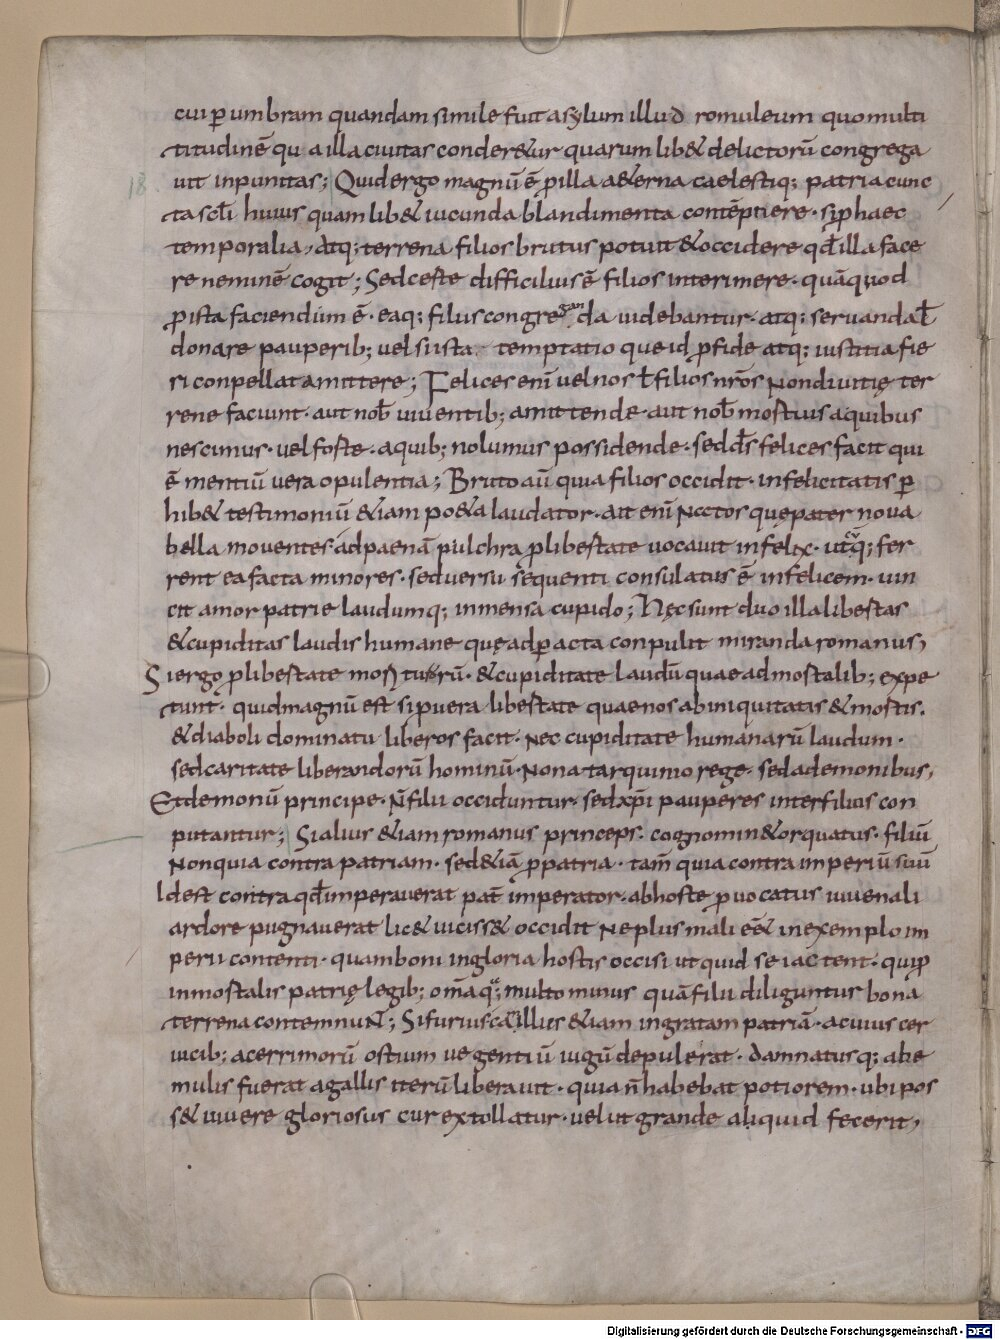 cui ꝑ umbram quandam simile fuit asylum illud romuleum quo multi
titudinē qua illa ciuitas conder&ur quarum lib& delictorū congrega
uit inpunitas; Quid ergo magnū ē ꝓ illa a&erna caelestiq; patria cunc
ta scłi huius quam lib& iucunda blandimenta contēptiere· si ꝓ haec
temporalia, atq; terrena filios brutus potuit & occidere qđ illa face
re neminē cogit; Sed certe difficilius ē filios interimere· quā quod
ꝓ ista faciendum ē· ea q; filius congreganda uidebantur· atq; seruanda ł
donare pauperib; uel si ista temptatio que id ꝓ fide atq; iustitia fie
ri conpellat amittere; Felices enī uel nos ł filios nr̄os non diuitię ter
rene faciunt· aut nob̄ uiuentib; amittende· aut nob̄ mortuis a quibus
nescimus· uel forte· a quib; nolumus possidende· sed d̄s felices facit qui
ē mentiū uera opulentia; Bruto aū quia filios occidit· infelicitatis ꝑ
hib& testimoniū &iam po&a laudator· ait enī Nectos quę pater noua
bella mouentes· ad paenā pulchra ꝓ libertate uocauit infelix· utq; fer
rent ea facta minores· sed uersu sequenti consulatus ē infelicem· uin
cit amor patrie laudumq; inmensa cupido; Hęc sunt duo illa libertas
& cupiditas laudis humane que ad ꝑacta conpulit miranda romanus,
Si ergo ꝓ libertate moriturū· & cupiditate laudū quae a mortalib; expe
tunt· quid magnū est si ꝓ uera libertate quae nos ab iniquitatis & mortis.
& diaboli dominatu liberos facit· Nec cupiditate humanarū laudum·
sed caritate liberandorū hominū· Non a tarquinio rege· sed a demonibus,
Et demonū principe· N̄ filii occiduntur· sed xp̄i pauperes inter filius con
putantur; Si alius &iam romanus princeps· cognomin& orquatus· filiū
Non quia contra patriam· sed &iā ꝓ patria· tam̄ quia contra imperiū suū
Idest contra qđ imperauerat pat̄ imperator· ab hoste ꝓuocatus iuuenali
ardore pugnauerat lic& uiciss& occidit Ne plus mali eē& in exemplo im
perii contenti· quam boni in gloria hostis occisi ut quid se iactent· qui ꝓ
inmortalis patrię legib; om̄a q; multo minus quā filii diliguntur bona
terrena contemnuNT; Si furius camillus &iam ingratam patriā· a cuius cer
uicib; acerrimorū ostium uegentiū iugū depulerat· damnatusq; ab e
mulis fuerat a gallis iterū liberauit· quia n̄ habebat potiorem· ubi pos
s& uiuere gloriosus cur extollatur· uelut grande aliquid fecerit,
18
Digitalisierung gefördert durch die Deutsche Forschungsgemeinschaft - DFG